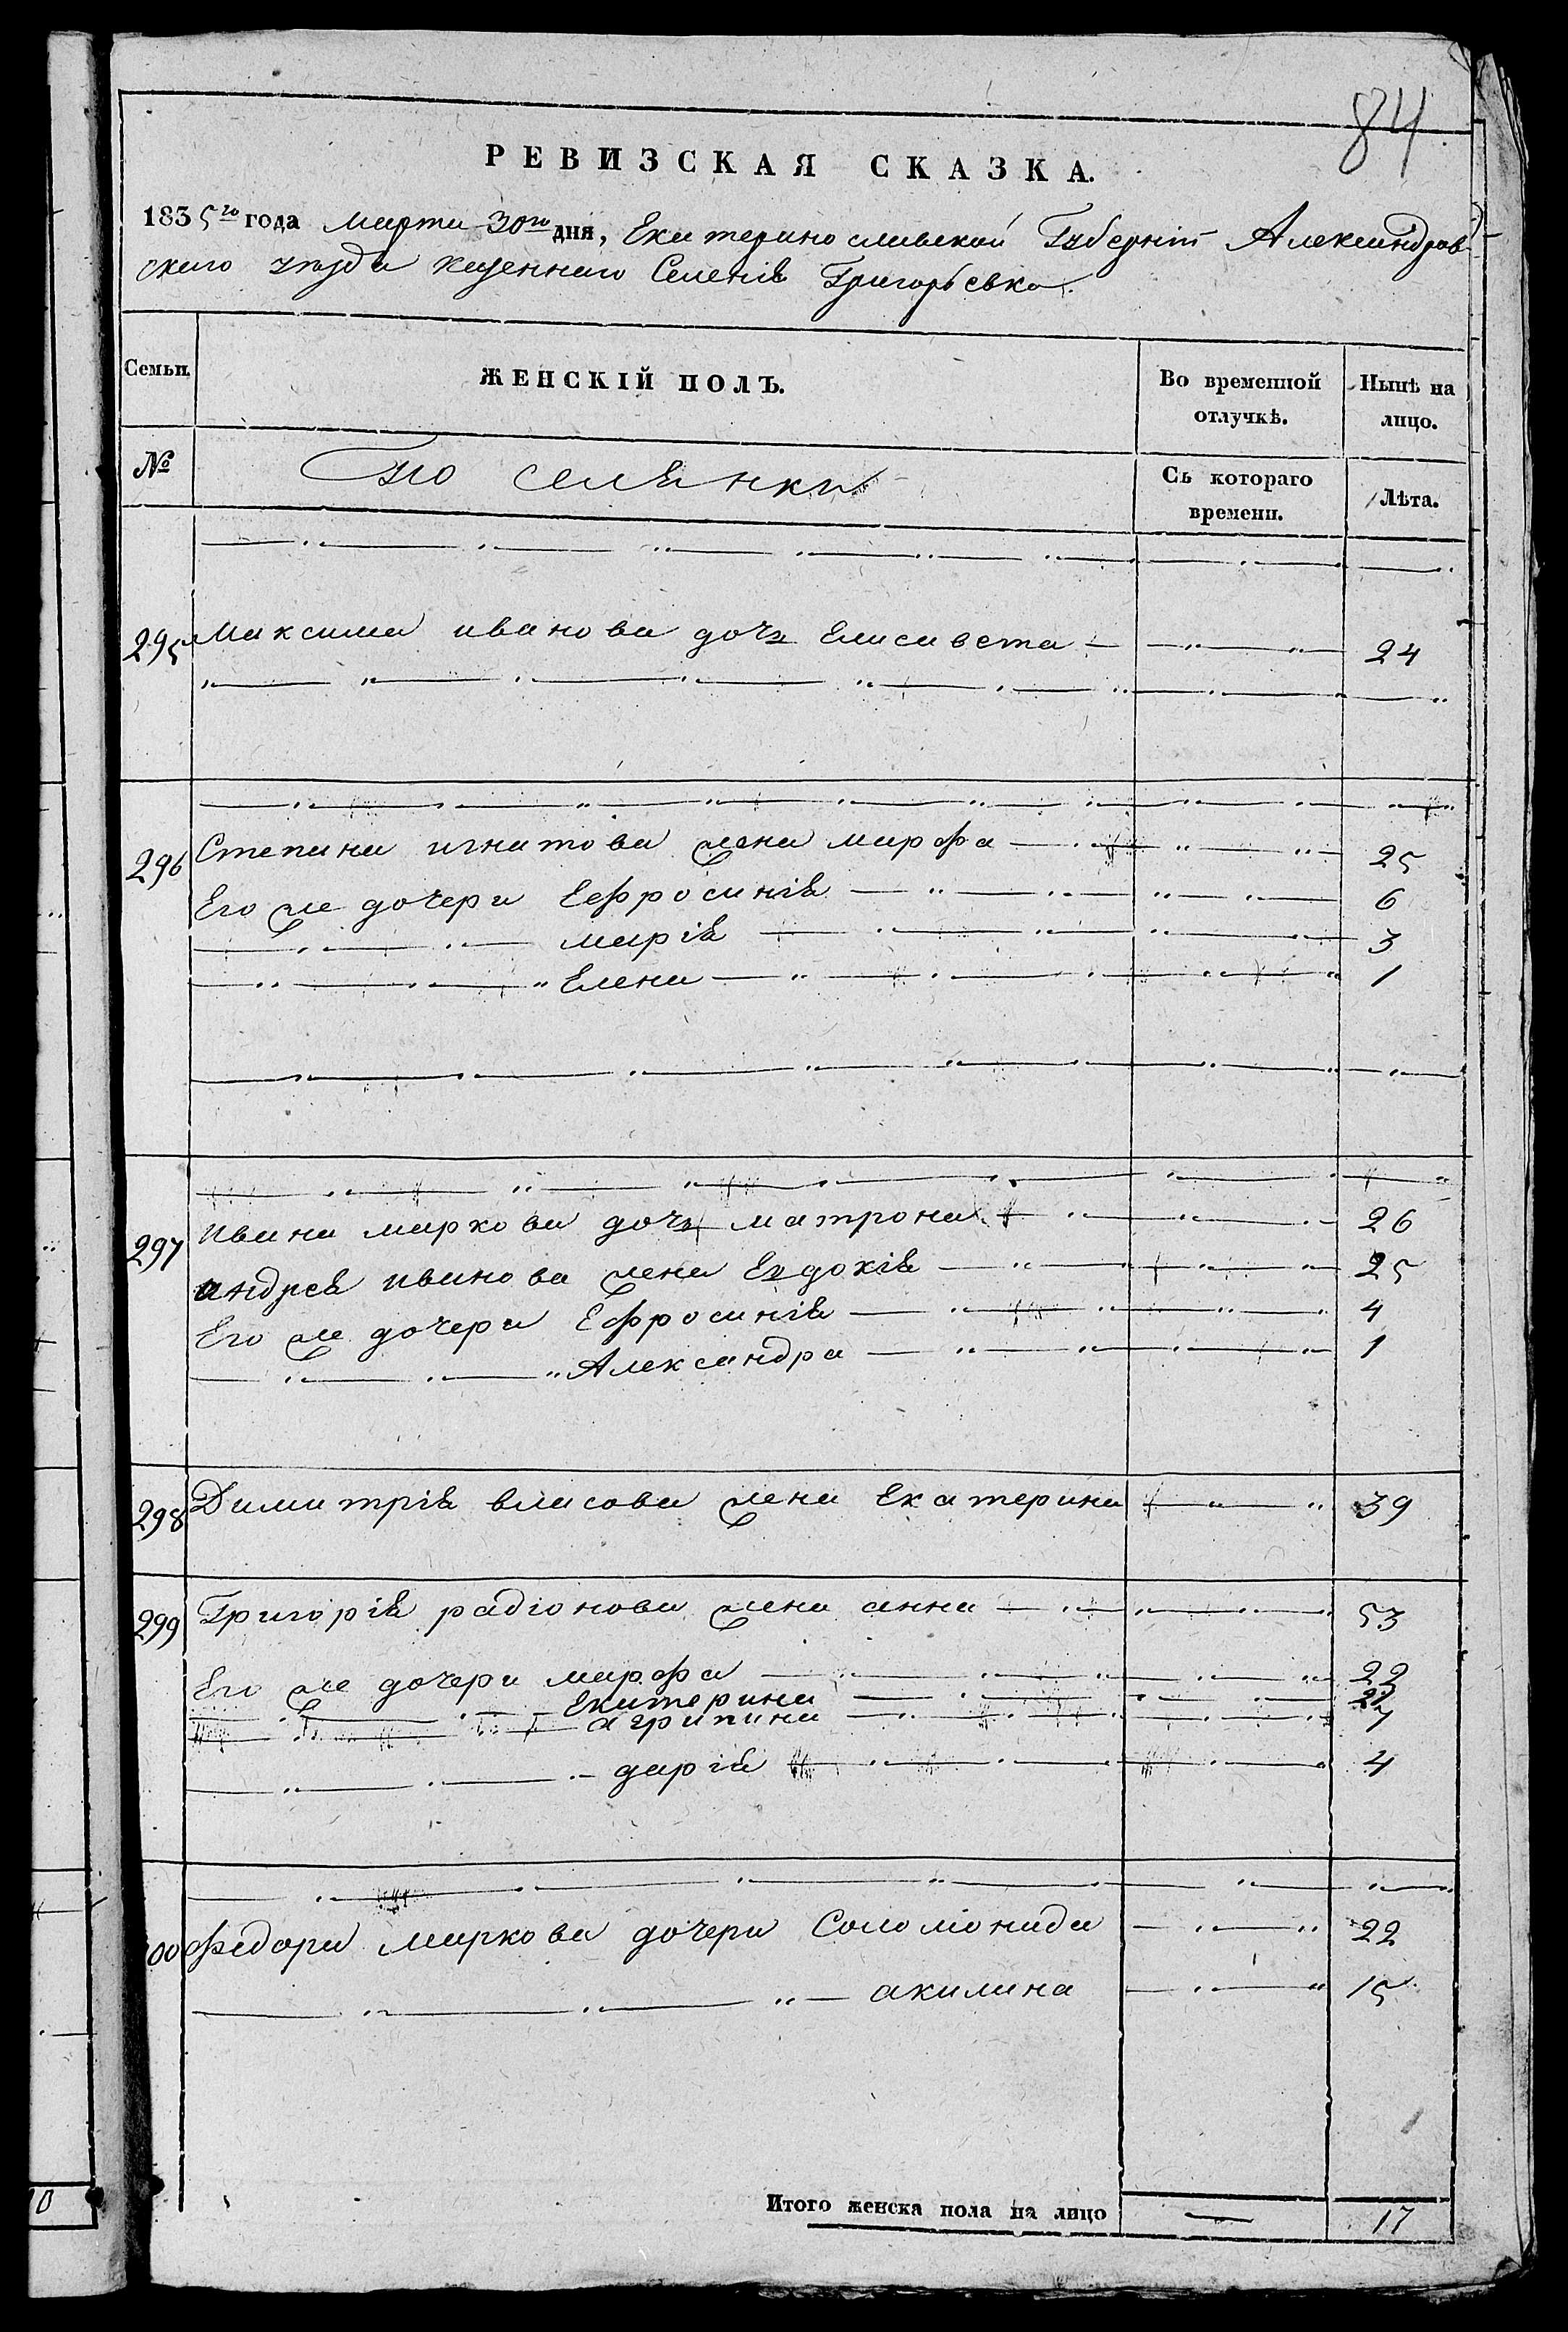 84
РЕВИЗСКАЯ СКАЗКА.
1835го года марта 30го дня, Екатеринославской Губерніи Александров
скаго уѣзда казеннаго Селенія Григорьевка
Семьи. ЖЕНСКІЙ ПОЛЪ. Во временной отлучкѣ. Нынѣ на лицо.
№ Поселянки Съ котораго времени. Лѣта.
295 Максима иванова дочь Елисавета 24
296 Степана игнатова жена марфа 25
Его же дочери Ефросинія 6
марія 3
Елена 1
297 Ивана маркова дочь матрона 26
андрея иванова жена Евдокія 25
Его же дочери Ефросинія 4
Александра 1
298 Димитрія власова жена Екатерина 39
299 Григорія радіонова жена анна 53
Его же дочери марфа 22
Екатерина
агрипина 7
дарія 4
00 Федора Маркова дочери Соломонида 22
акилина 15
Итого женска пола на лицо — 17
0